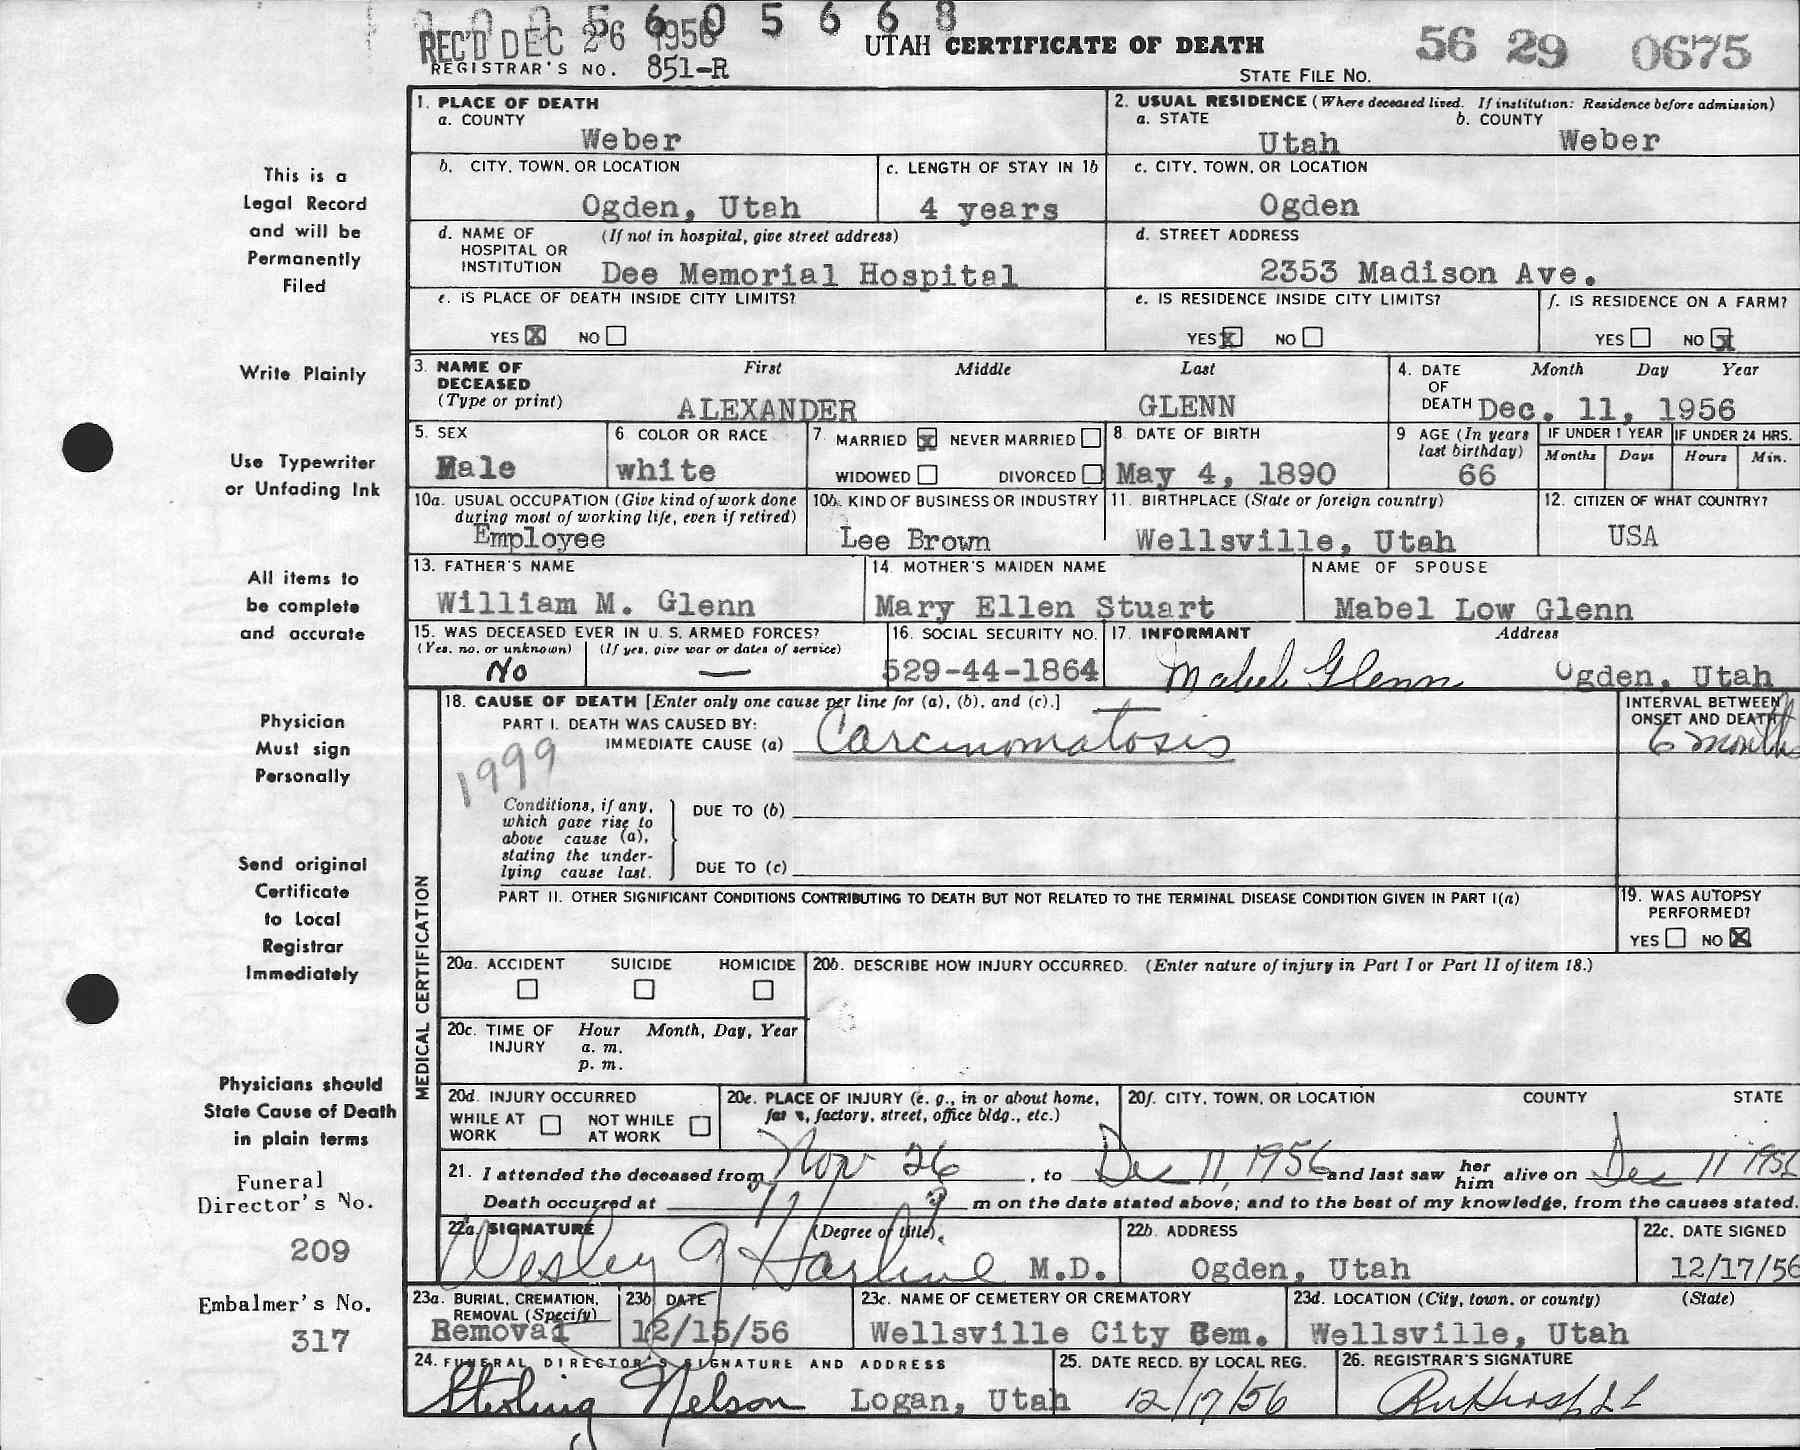 0 0 0 5 6 0 5 6 6 8
REC'D DEC 26 1956
UTAH CERTIFICATE OF DEATH
56 29 0675
REGISTRAR'S NO. 851-R
STATE FILE NO.
1. PLACE OF DEATH
a. COUNTY
Weber
2. USUAL RESIDENCE (Where deceased lived. If institution: Residence before admission)
a. STATE b. COUNTY
Utah Weber
b. CITY, TOWN, OR LOCATION
Ogden, Utah
c. LENGTH OF STAY IN 1b
4 years
c. CITY, TOWN, OR LOCATION
Ogden
d. NAME OF HOSPITAL OR INSTITUTION (If not in hospital, give street address)
Dee Memorial Hospital
d. STREET ADDRESS
2353 Madison Ave.
e. IS PLACE OF DEATH INSIDE CITY LIMITS?
YES X NO
e. IS RESIDENCE INSIDE CITY LIMITS?
YES X NO
f. IS RESIDENCE ON A FARM?
YES NO X
3. NAME OF DECEASED (Type or print)
First Middle Last
ALEXANDER GLENN
4. DATE OF DEATH
Month Day Year
Dec. 11, 1956
5. SEX
Male
6. COLOR OR RACE
white
7. MARRIED X NEVER MARRIED
WIDOWED DIVORCED
8. DATE OF BIRTH
May 4, 1890
9 AGE (In years last birthday)
66
IF UNDER 1 YEAR
Months Days
IF UNDER 24 HRS.
Hours Min.
10a. USUAL OCCUPATION (Give kind of work done during most of working life, even if retired)
Employee
10b. KIND OF BUSINESS OR INDUSTRY
Lee Brown
11. BIRTHPLACE (State or foreign country)
Wellsville, Utah
12. CITIZEN OF WHAT COUNTRY?
USA
13. FATHER'S NAME
William M. Glenn
14. MOTHER'S MAIDEN NAME
Mary Ellen Stuart
NAME OF SPOUSE
Mabel Low Glenn
15. WAS DECEASED EVER IN U. S. ARMED FORCES?
(Yes, no, or unknown) (If yes, give war or dates of service)
No —
16. SOCIAL SECURITY NO.
529-44-1864
17. INFORMANT Address
Mabel Glenn Ogden, Utah
MEDICAL CERTIFICATION
18. CAUSE OF DEATH [Enter only one cause per line for (a), (b), and (c).]
PART I. DEATH WAS CAUSED BY:
IMMEDIATE CAUSE (a) Carcinomatosis
1999
INTERVAL BETWEEN ONSET AND DEATH
6 months
Conditions, if any, which gave rise to above cause (a), stating the underlying cause last.
DUE TO (b)
DUE TO (c)
PART II. OTHER SIGNIFICANT CONDITIONS CONTRIBUTING TO DEATH BUT NOT RELATED TO THE TERMINAL DISEASE CONDITION GIVEN IN PART I(a)
19. WAS AUTOPSY PERFORMED?
YES NO X
20a. ACCIDENT SUICIDE HOMICIDE
20b. DESCRIBE HOW INJURY OCCURRED. (Enter nature of injury in Part I or Part II of item 18.)
20c. TIME OF INJURY Hour Month, Day, Year
a. m.
p. m.
20d. INJURY OCCURRED
WHILE AT WORK NOT WHILE AT WORK
20e. PLACE OF INJURY (e. g., in or about home, farm, factory, street, office bldg., etc.)
20f. CITY, TOWN, OR LOCATION COUNTY STATE
21. I attended the deceased from Nov 26, to Dec 11, 1956 and last saw her him alive on Dec 11 1956
Death occurred at m on the date stated above; and to the best of my knowledge, from the causes stated.
22a. SIGNATURE (Degree or title)
Wesley G Harline M.D.
22b. ADDRESS
Ogden, Utah
22c. DATE SIGNED
12/17/56
23a. BURIAL, CREMATION, REMOVAL (Specify)
Removal
23b DATE
12/15/56
23c. NAME OF CEMETERY OR CREMATORY
Wellsville City Cem.
23d. LOCATION (City, town, or county) (State)
Wellsville, Utah
24. FUNERAL DIRECTOR'S SIGNATURE AND ADDRESS
Sterling Nelson Logan, Utah
25. DATE RECD. BY LOCAL REG.
12/17/56
26. REGISTRAR'S SIGNATURE
This is a
Legal Record
and will be
Permanently
Filed
Write Plainly
Use Typewriter
or Unfading Ink
All items to
be complete
and accurate
Physician
Must sign
Personally
Send original
Certificate
to Local
Registrar
Immediately
Physicians should
State Cause of Death
in plain terms
Funeral
Director's No.
209
Embalmer's No.
317